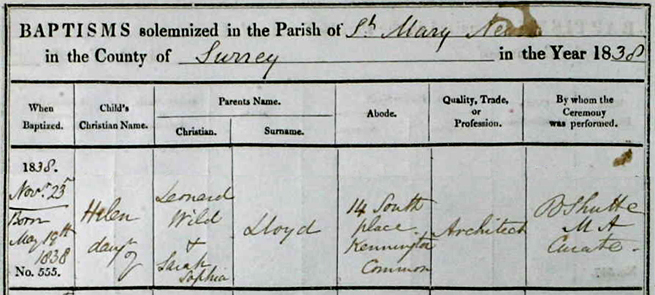 BAPTISMS solemnized in the Parish of St. Mary
in the County of Surrey in the Year 1838
When Baptized.
Child's Christian Name.
Parents Name.
Christian.
Surname.
Abode.
Quality, Trade, or Profession.
By whom the Ceremony was performed.
1838.
Novr. 23r
Born
May 19th
1838
No. 555.
Helen
daugr of
Leonard
Wild
+
Sarah
Sophia
Lloyd
14 South
place
Kennington
Common
Architect
Shutte
M A
Curate